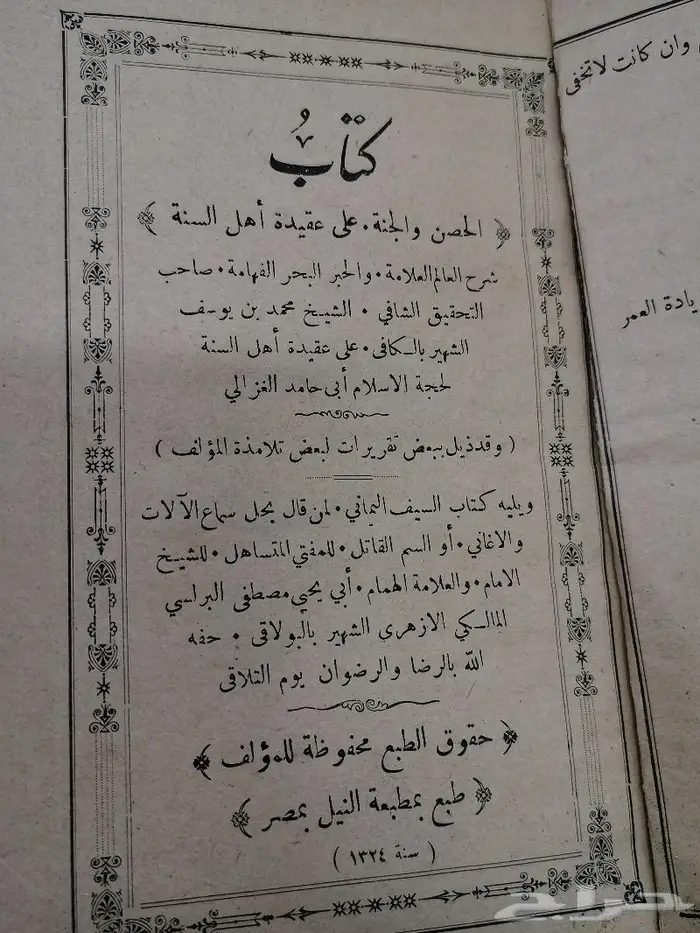 كتاب
الحصن والجنة ٠ على عقيدة أهل السنة
شرح العالم العلامة ٠ والحبر البحر الفهامة ٠ صاحب
التحقيق الشافي ٠ الشيخ محمد بن يوسف
الشهير بالكافى ٠ على عقيدة أهل السنة
لحجة الاسلام أبى حامد الغزالي
( وقد ذيل ببعض تقريرات لبعض تلامذة المؤلف )
ويليه كتاب السيف اليماني ٠ لمن قال بحل سماع الآلات
والاغاني ٠ أو السم القاتل ٠ للمفتي المتساهل ٠ للشيخ
الامام ٠ والعلامة الهمام ٠ أبي يحيى مصطفى البرلسي
المالكي الازهري الشهير بالبولاقى ٠ حفه
الله بالرضا والرضوان يوم التلاقى
حقوق الطبع محفوظة للمؤلف
طبع بمطبعة النيل بمصر
( سنة ١٣٢٤ )
وان كانت لا تخفى
يادة العمر
حراج